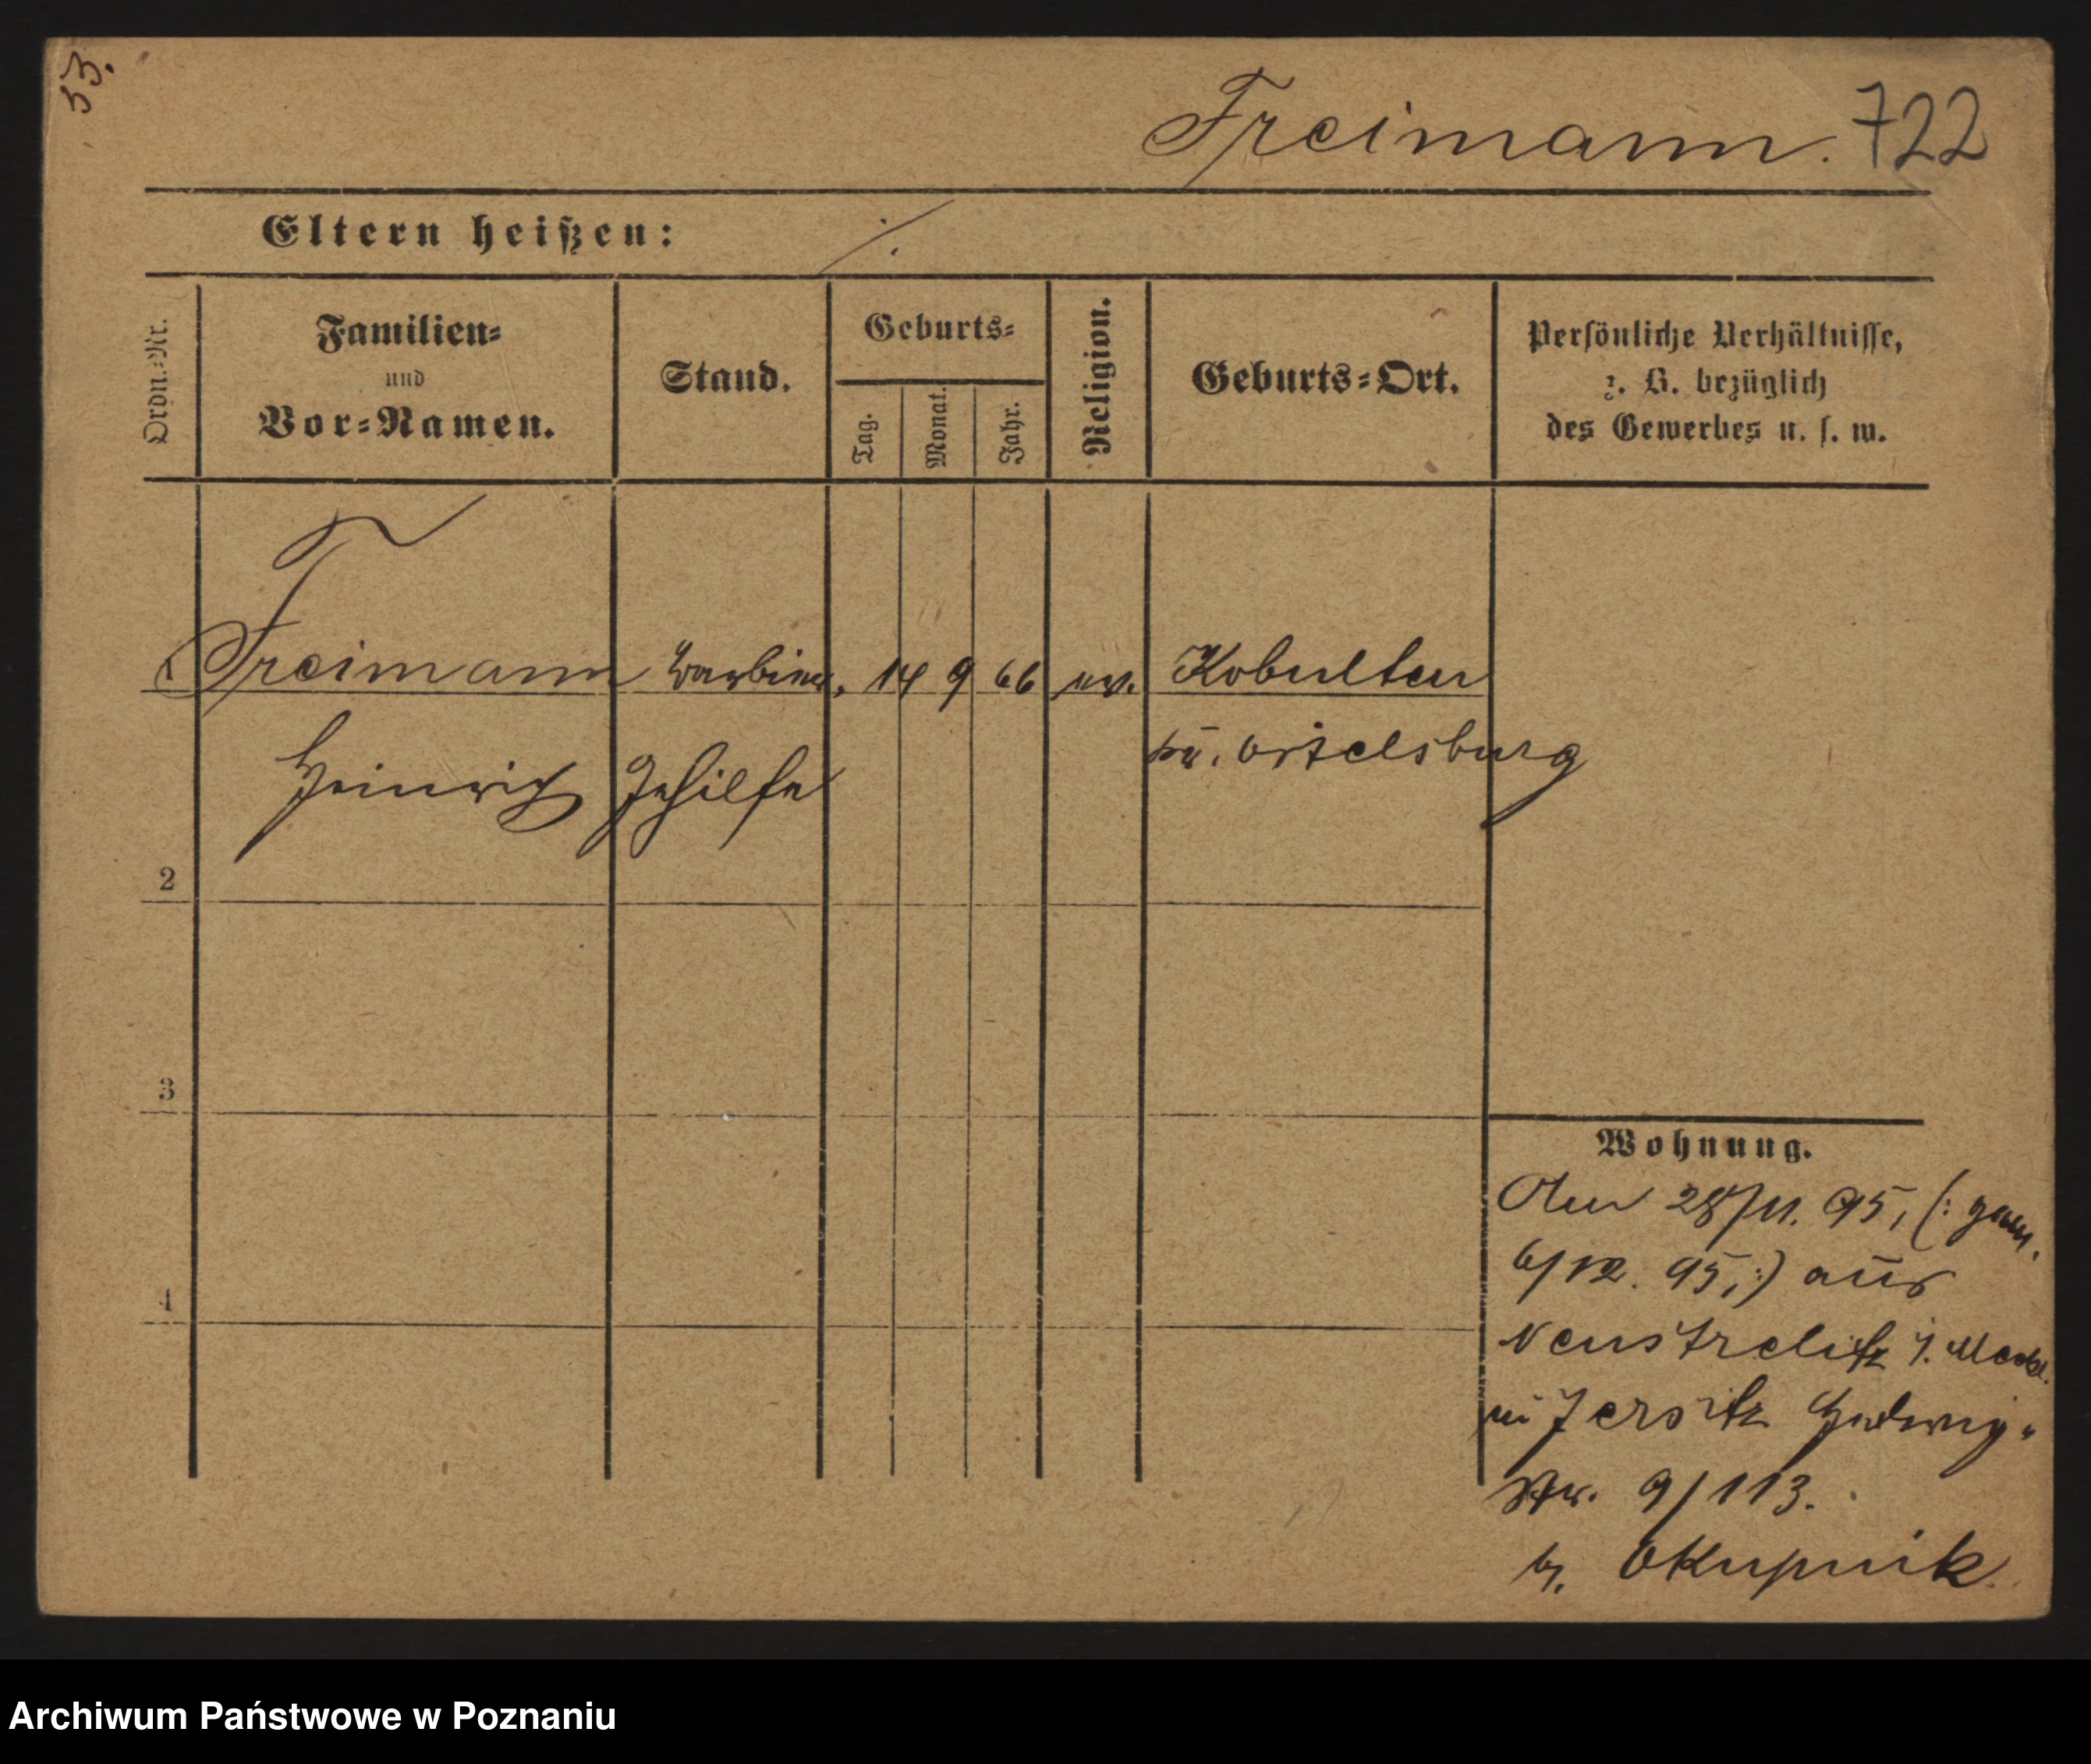 53.
Freimann. 722
Eltern heißen: ·/.
Ordn.-Nr.
Familien-
und
Vor-Namen.
Stand.
Geburts-
Tag.
Monat.
Jahr.
Religion.
Geburts-Ort.
Persönliche Verhältnisse,
z. B. bezüglich
des Gewerbes u. s. w.
1 Freimann Barbier, 14 9 66 ev. Kobulten
Kr. Ortelsburg
Heinrich Gehilfe
2
3
4
Wohnung.
Am 28/11. 95, (: gem.
6/12. 95, :) aus
Neustrelitz i. Meckl.
in Jersitz Hedwig-
Str. 9/113.
b. Okupnik.
Archiwum Państwowe w Poznaniu